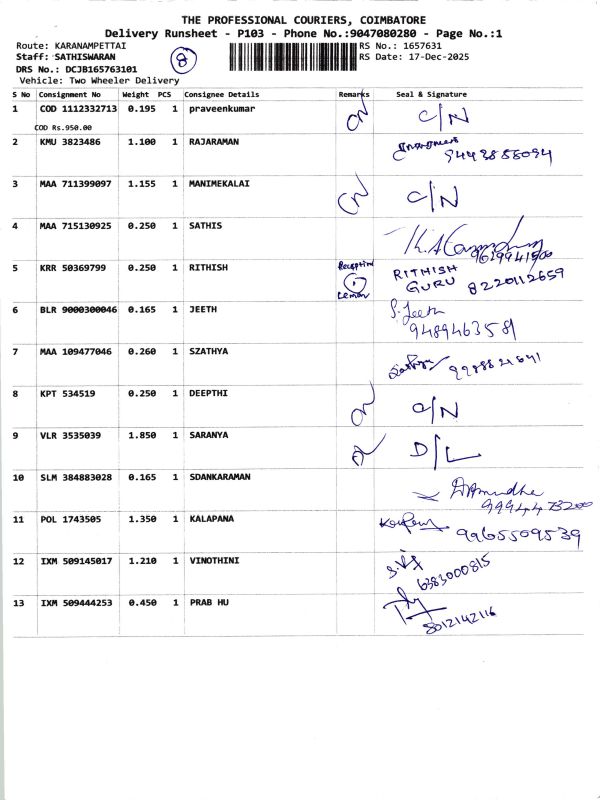 THE PROFESSIONAL COURIERS, COIMBATORE
Delivery Runsheet - P103 - Phone No.:9047080280 - Page No.:1
Route: KARANAMPETTAI RS No.: 1657631
Staff: SATHISWARAN 8 RS Date: 17-Dec-2025
DRS No.: DCJB165763101
Vehicle: Two Wheeler Delivery
S No Consignment No Weight PCS Consignee Details Remarks Seal & Signature
1 COD 1112332713 0.195 1 praveenkumar CN C/N
COD Rs.950.00
2 KMU 3823486 1.100 1 RAJARAMAN
3 MAA 711399097 1.155 1 MANIMEKALAI CN C/N
4 MAA 715130925 0.250 1 SATHIS
5 KRR 50369799 0.250 1 RITHISH Reception RITHISH
GURU 8220112659
6 BLR 9000300046 0.165 1 JEETH S. Jeeth
9489463581
7 MAA 109477046 0.260 1 SZATHYA
8 KPT 534519 0.250 1 DEEPTHI CN C/N
9 VLR 3535039 1.850 1 SARANYA D/L
10 SLM 384883028 0.165 1 SDANKARAMAN
11 POL 1743505 1.350 1 KALAPANA 9965509539
12 IXM 509145017 1.210 1 VINOTHINI
6383000815
13 IXM 509444253 0.450 1 PRAB HU
8012142116